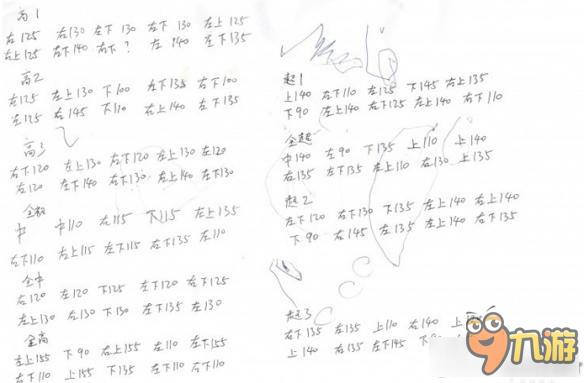 高1
右125 右130 左下130 右下130 左上125
右上125 右下140 右下? 左?140 左下135
高2
左125 左上130 下100 左下135 右下100
左125 右145 下110 右上140 左下135
高3
右下120 左上130 右下120 左上130 左120
右120 左下140 右下130 左上140 左下130
全
中 中110 右115 下115 左上135
右下110 右上115 左下115 右下135 左110
全中
右120 左120 下125 左下120 右下125
左上130 左130 下130 左下135 左130
全高
左上155 下90 右上155 左110 左下155
右下110 上155 下135 左下110 右下110
超1
上140 右下110 左125 下145 右上135
下90 左上140 右下125 左上140 右下110
全超
中140 左90 下135 上110 上140
右135 左下135 左上110 右130 上135
超2
左下120 右下130 下135 左上140 右上140
下90 右145 左135 左上140 右下135
超3
右下135 左135 上110 右140 上
上140 右135 左下145
九游